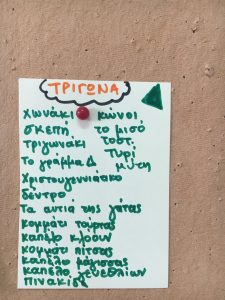 ΤΡΙΓΩΝΑ
Χωνάκι κώνοι
σκεπή το μισό
τριγωνάκι τοστ
Το γράμμα Δ τυρί
μύτη
Χριστουγεννιάτικο
δέντρο
Τα αυτιά της γάτας
κομμάτι τούρτας
καπέλο κλόουν
κομμάτι πίτσας
καπέλο μάγισσας
καπέλο γενεθλίων
πινακίδα